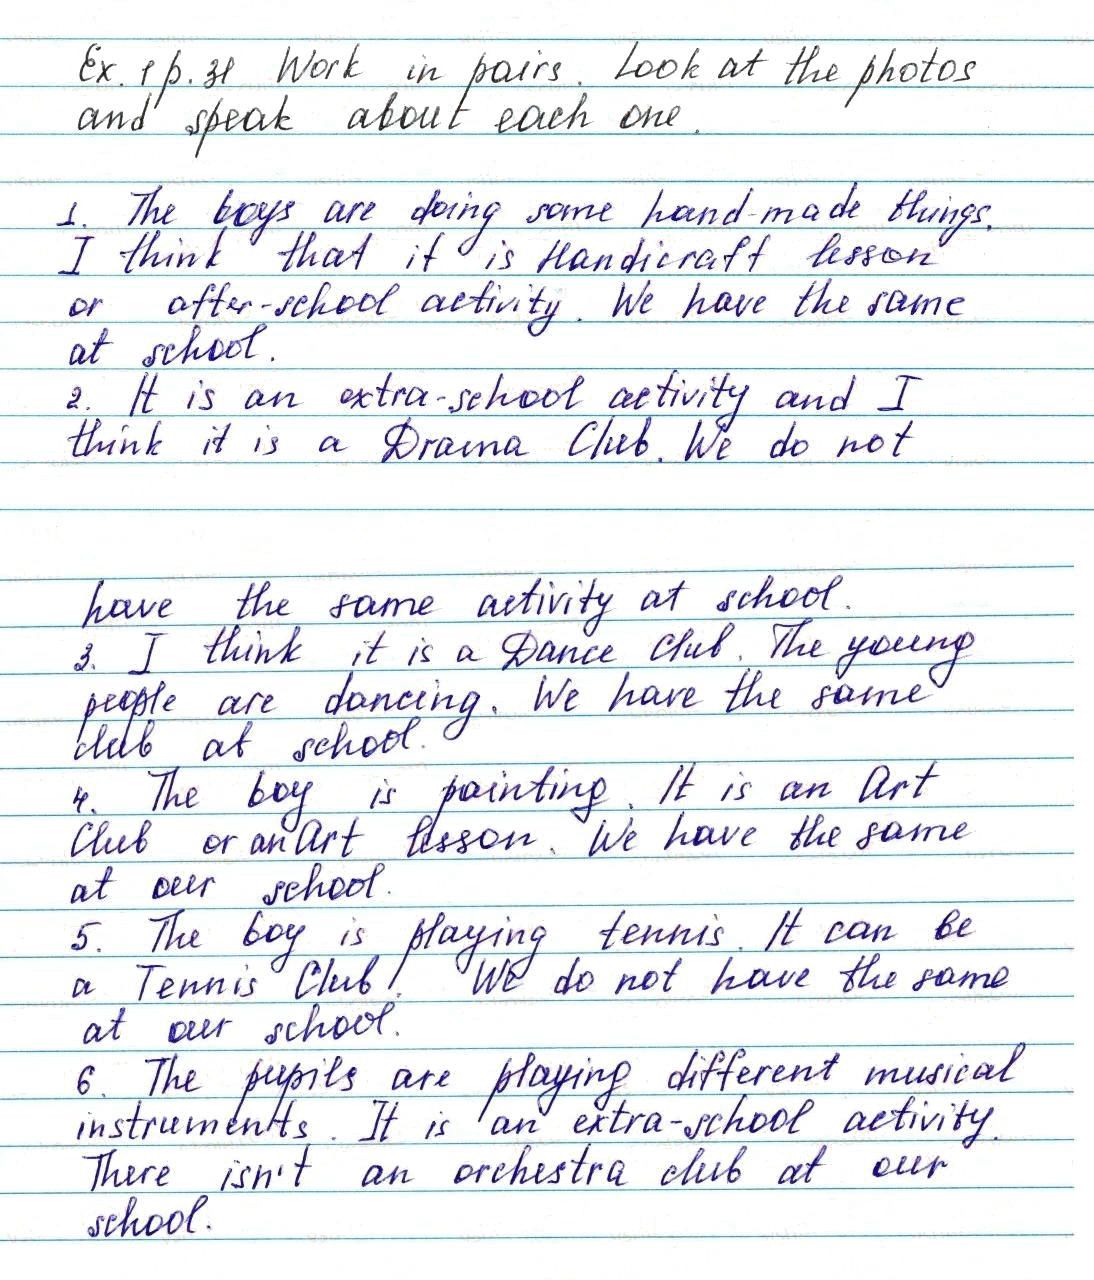 Ex. 1 p. 31 Work in pairs. Look at the photos
and speak about each one.
1. The boys are doing some hand-made things.
I think that it is Handicraft lesson
or after-school activity. We have the same
at school.
2. It is an extra-school activity and I
think it is a Drama Club. We do not
have the same activity at school.
3. I think it is a Dance Club. The young
people are dancing. We have the same
club at school.
4. The boy is painting. It is an Art
Club or an Art lesson. We have the same
at our school.
5. The boy is playing tennis. It can be
a Tennis Club. We do not have the same
at our school.
6. The pupils are playing different musical
instruments. It is an extra-school activity.
There isn't an orchestra club at our
school.